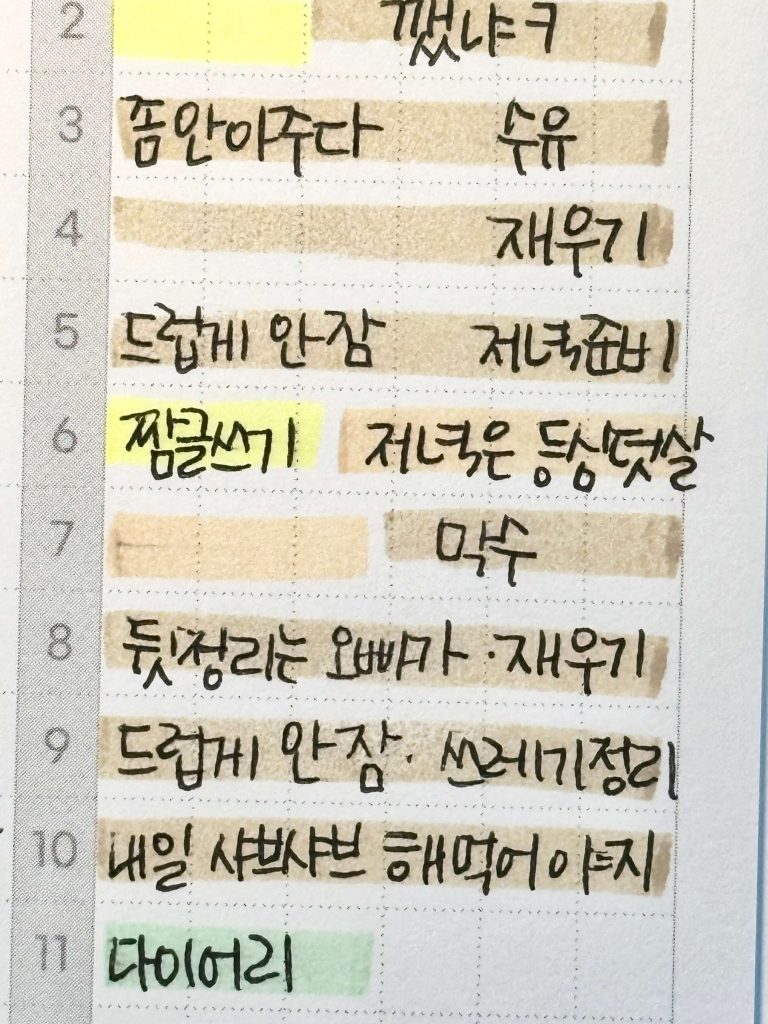 2 깼냐ㅋ
3 좀 안아주다 수유
4 재우기
5 드럽게 안 잠 저녁준비
6 짬글쓰기 저녁은 등심덧살
7 막수
8 뒷정리는 오빠가 · 재우기
9 드럽게 안 잠. 쓰레기정리
10 내일 샤브샤브 해먹어야지
11 다이어리